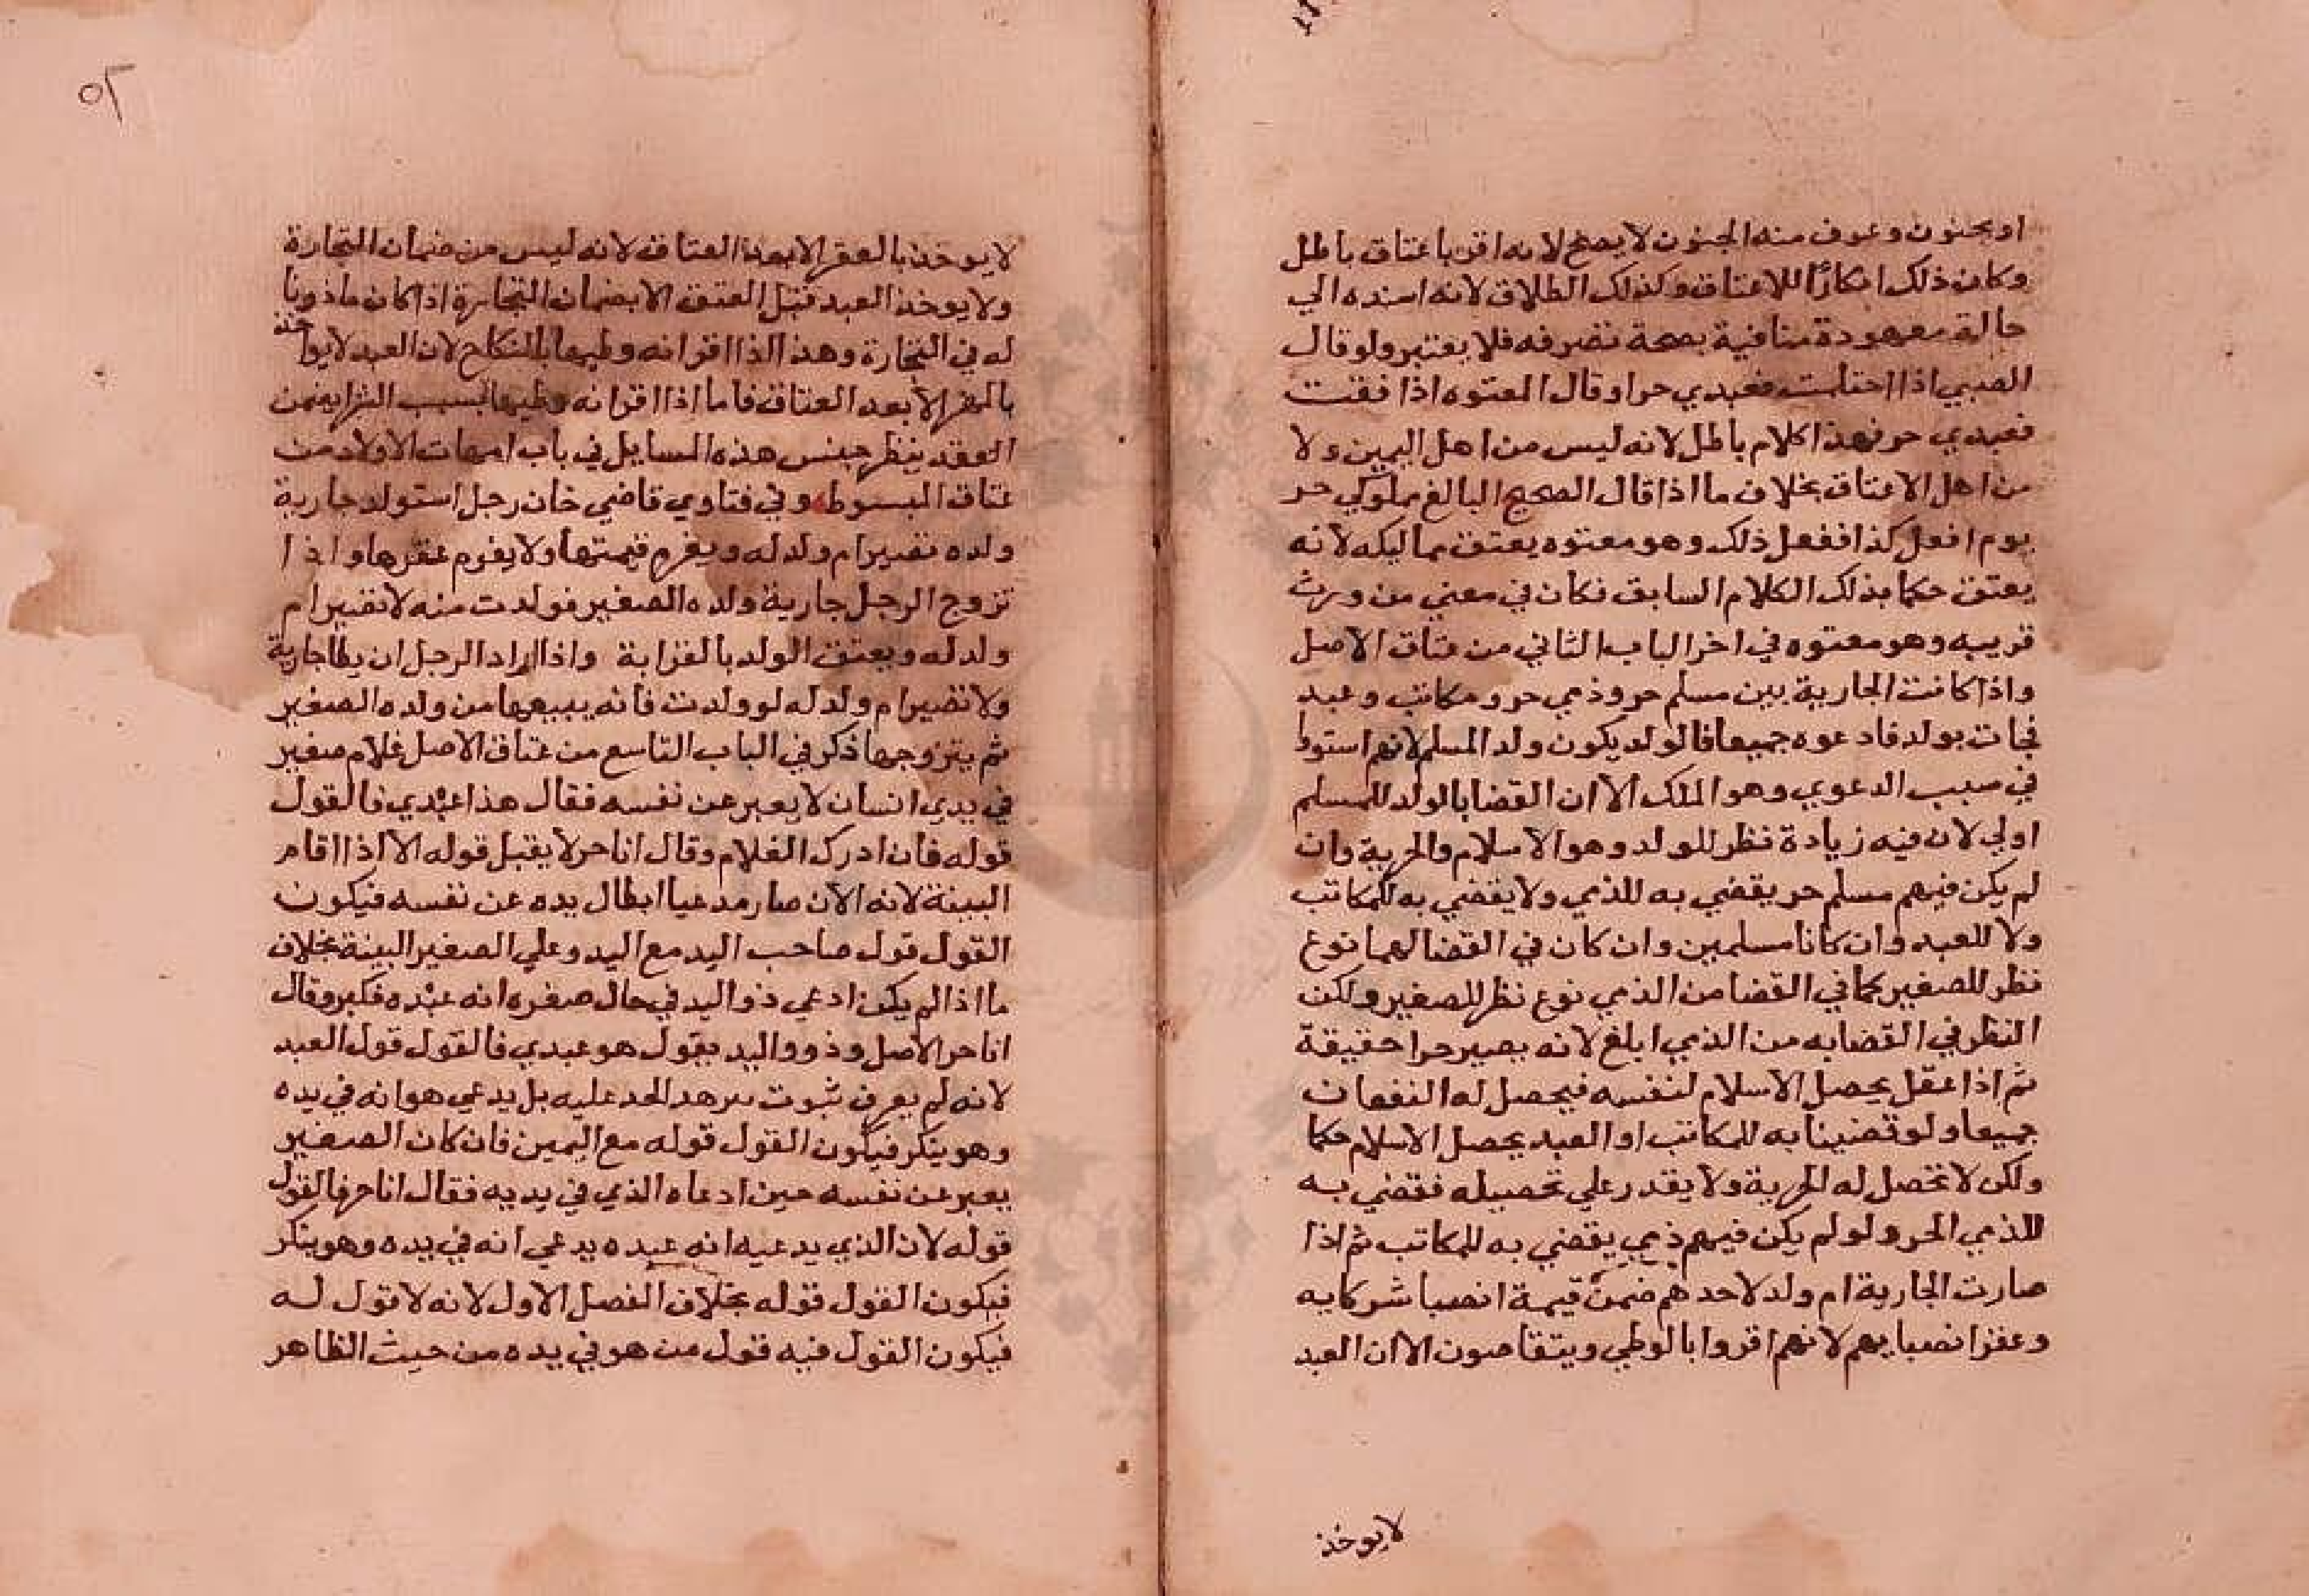 او مجنون وعرف منه الجنون لا يصح لانه اقر باعتاق باطل
وكان ذلك انكارًا للاعتاق وكذلك الطلاق لانه اسنده الي
حالة معهودة منافية بصحة تصرفه فلا يعتبر ولو قال
الصبي اذا احتلمت فعبدي حر او قال المعتوه اذا فقت
فعبدي حر فهذا كلام باطل لانه ليس من اهل اليمين ولا
من اهل الاعتاق بخلاف ما اذا قال الصحيح البالغ مملوكي حر
يوم افعل كذا ففعل ذلك وهو معتوه يعتق مماليكه لانه
يعتق حكما بذلك الكلام السابق فكان في معني من ورث
قريبه وهو معتوه في اخر الباب الثاني من عتاق الاصل
واذا كانت الجارية بين مسلم حر وذمي حر ومكاتب وعبد
فجات بولد فادعوه جميعا فالولد يكون ولد المسلم لانهم استووا
في سبب الدعوي وهو الملك الا ان القضا بالولد للمسلم
اولي لان فيه زيادة نظر للولد وهو الاسلام والحرية وان
لم يكن فيهم مسلم حر يقضي به للذمي ولا يقضي به للمكاتب
ولا للعبد وان كانا مسلمين وان كان في القضا لهما نوع
نظر للصغير كما في القضا من الذمي نوع نظر للصغير ولكن
النظر في القضا به من الذمي ابلغ لانه يصير حرا حقيقة
ثم اذا عقل يحصل الاسلام لنفسه فيحصل له النفعان
جميعا ولو قضينا به للمكاتب او العبد يحصل الاسلام حكما
ولكن لا تحصل له الحرية ولا يقدر علي تحصيله فقضي به
للذمي الحر ولو لم يكن فيهم ذمي يقضي به للمكاتب ثم اذا
صارت الجارية ام ولد لاحدهم ضمن قيمة انصبا شركايه
وعقر انصبايهم لانهم اقروا بالوطي ويتقاصون الا ان العبد
لا يوخذ
٥٢
لا يوخذ بالعقر الا بعد العتاق لانه ليس من ضمان التجارة
ولا يوخذ العبد قبل العتق الا بضمان التجارة اذا كان ماذونا
له في التجارة وهذا اذا اقر انه وطيها بالنكاح لان العبد لا يواخذ
بالعقر الا بعد العتاق فاما اذا اقر انه وطيها بسبب الشرا يضمن
العقد ينظر جنس هذه المسايل في باب امهات الاولاد من
عتاق المبسوط وفي فتاوي قاضي خان رجل استولد جارية
ولده تصير ام ولد له ويغرم قيمتها ولا يغرم عقرها واذا
تزوج الرجل جارية ولده الصغير فولدت منه لا تصير ام
ولد له ويعتق الولد بالقرابة واذا اراد الرجل ان يطا جارية
ولا تصير ام ولد له لو ولدت فانه يبيعها من ولده الصغير
ثم يتزوجها ذكر في الباب التاسع من عتاق الاصل غلام صغير
في يدي انسان لا يعبر عن نفسه فقال هذا عبدي فالقول
قوله فان ادرك الغلام وقال انا حر لا يقبل قوله الا اذا اقام
البينة لانه الان صار مدعيا ابطال يده عن نفسه فيكون
القول قول صاحب اليد مع اليد وعلي الصغير البينة بخلاف
ما اذا لم يكن ادعي ذو اليد في حال صغره انه عبده فكبر وقال
انا حر الاصل وذو واليد يقول هو عبدي فالقول قول العبد
لانه لم يعرف ثبوت عليه بل يدعي هو انه في يده
وهو ينكر فيكون القول قوله مع اليمين فان كان الصغير
يعبر عن نفسه حين ادعاه الذي في يديه فقال انا حر فالقول
قوله لان الذي يدعيه انه عبده يدعي انه في يده وهو ينكر
فيكون القول قوله بخلاف الفصل الاول لانه لا قول له
فيكون القول فيه قول من هو في يده من حيث الظاهر